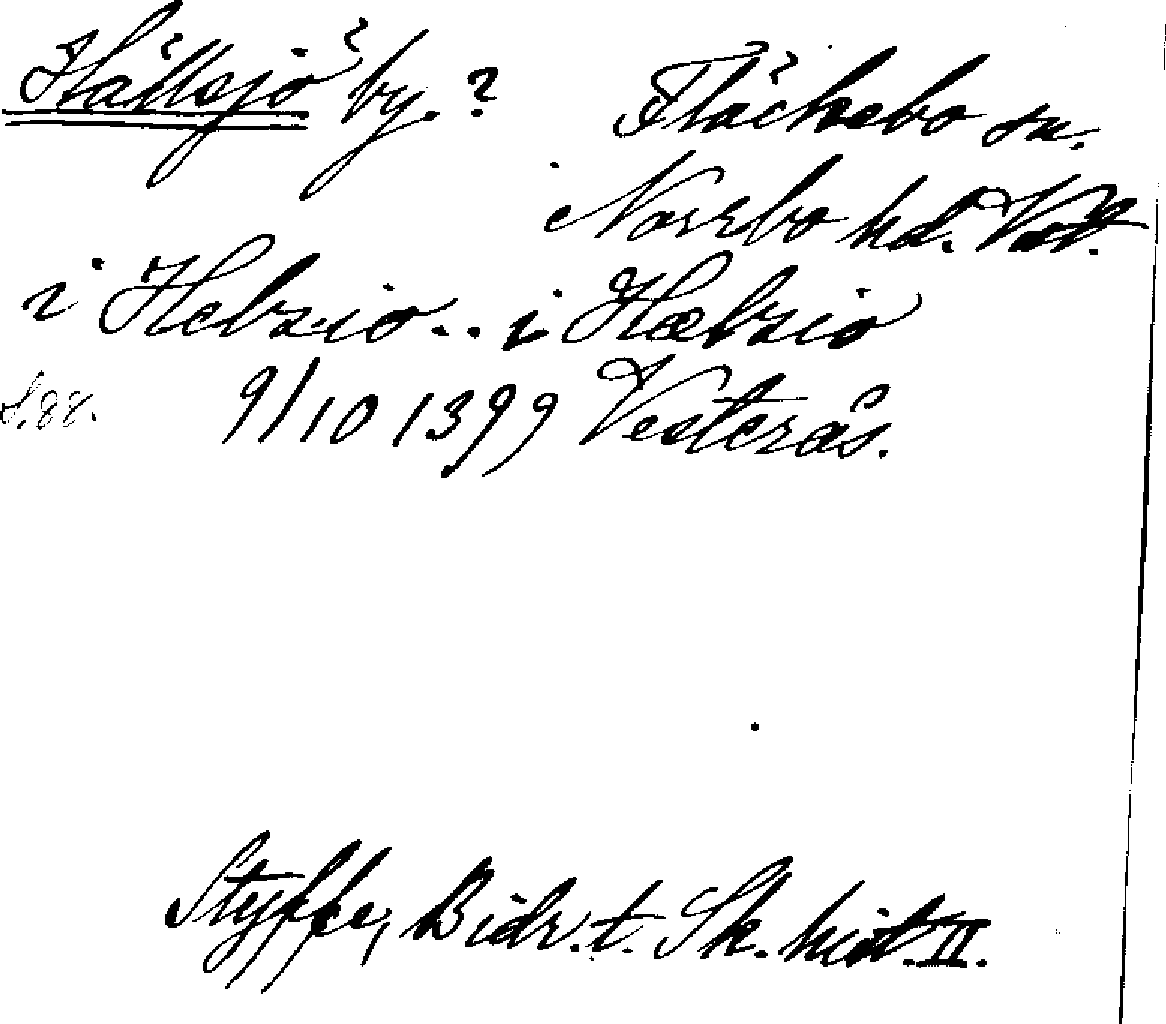 Hällsjö by. ? Fläckebo sn.
Norrbo hd. Vstl.
i Helzio .. i Hælzio
S. 88. 9/10 1399 Vesterås.
Styffe, Bidr. t. Sk. hist. II.